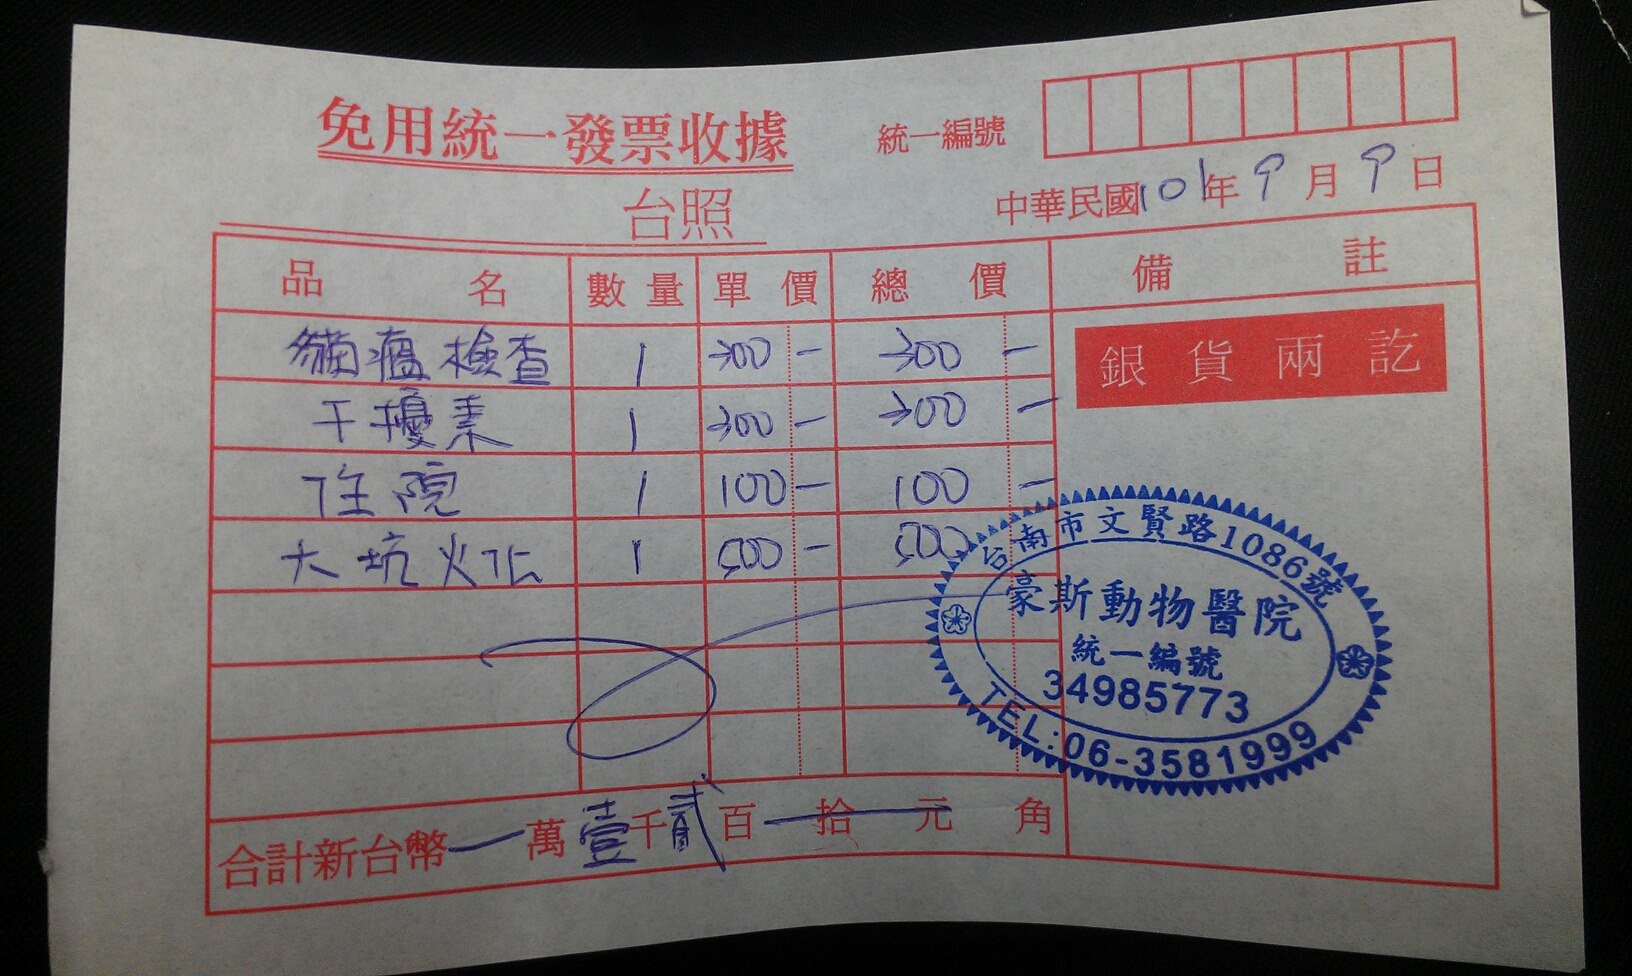 免用統一發票收據
統一編號
台照
中華民國101年9月9日
品名 數量 單價 總價 備註
貓瘟檢查 1 300- 300-
干擾素 1 300- 300-
住院 1 100- 100-
大坑火化 1 500- 500
銀貨兩訖
台南市文賢路1086號
豪斯動物醫院
統一編號
34985773
TEL:06-3581999
合計新台幣一萬壹千貳百拾元角